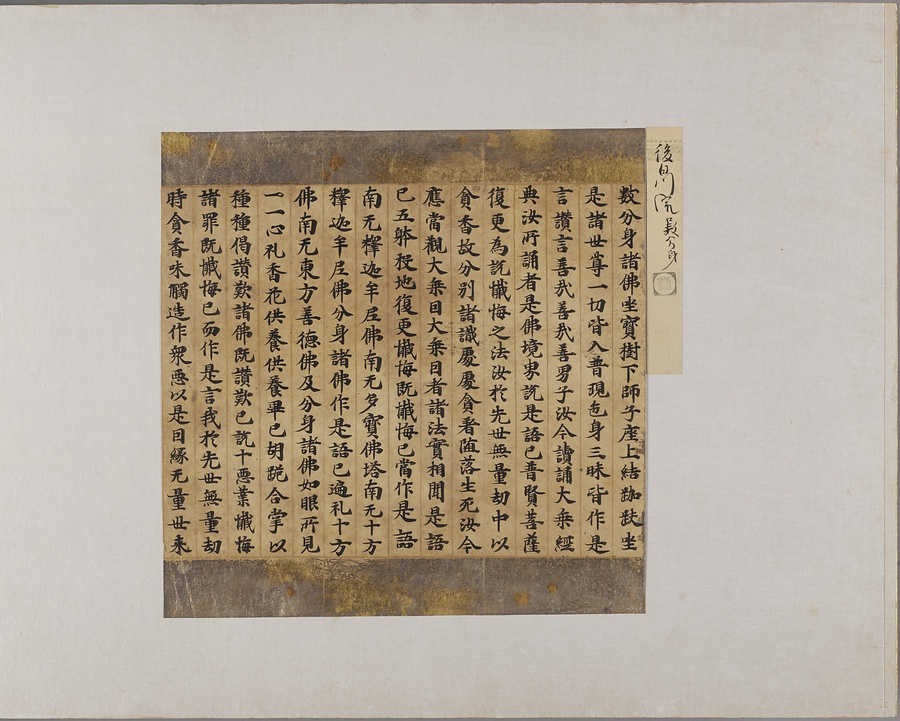 後鳥羽院 數分身
數分身諸佛坐寶樹下師子座上結跏趺坐
是諸世尊一切皆入普現色身三昧皆作是
言讚言善哉善哉善男子汝今讀誦大乘經
典汝所誦者是佛境界說是語已普賢菩薩
復更為說懺悔之法汝於先世無量劫中以
貪香故分別諸識處處貪著墮落生死汝今
應當觀大乘因大乘因者諸法實相聞是語
已五體投地復更懺悔既懺悔已當作是語
南无釋迦牟尼佛南无多寶佛塔南无十方
釋迦牟尼佛分身諸佛作是語已遍礼十方
佛南无東方善德佛及分身諸佛如眼所見
一一心礼香花供養供養畢已胡跪合掌以
種種偈讚歎諸佛既讚歎已說十惡業懺悔
諸罪既懺悔已而作是言我於先世無量劫
時貪香味觸造作衆惡以是因緣无量世來